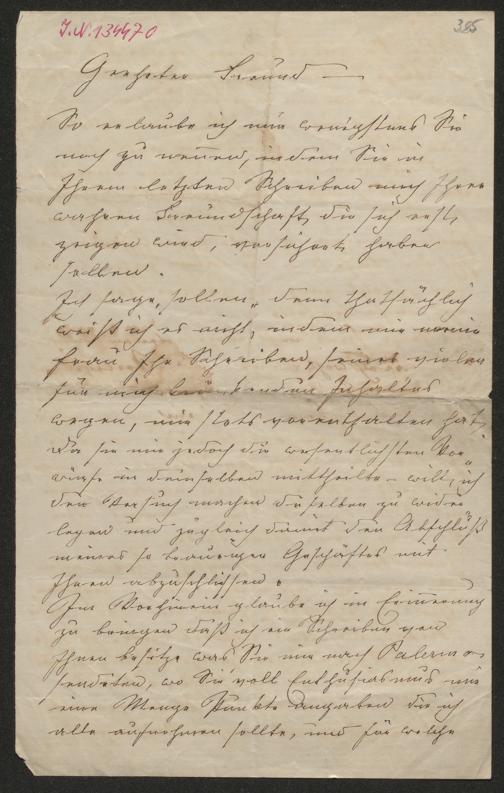 J.N. 134470
385
Geehrter Freund
So erlaube ich mir wenigstens Sie
noch zu nennen, indem Sie in
Ihrem letzten Schreiben mich Ihrer
wahren Freundschaft, die sich erst
zeigen wird, versichert haben
sollen.
Ich sage „sollen“ denn thatsächlich
weiß ich es nicht, indem mir meine
Frau Ihr Schreiben, seines vielen
für mich kränkenden Inhaltes
wegen, mir stets vorenthalten hat,
Da sie mir jedoch die wesentlichsten Vor
würfe in demselben mittheilte – will ich
den Versuch machen dieselben zu wider
legen und zugleich damit den Abschluß
meines so traurigen Geschäftes mit
Ihnen abzuschliessen.
Im Vorhinein glaube ich in Erinnerung
zu bringen daß ich ein Schreiben von
Ihnen besitze was Sie mir nach Palermo
sendeten, wo Sie voll Enthusiasmus mir
eine Menge Punkte angaben die ich
alle aufnehmen sollte, und für welche